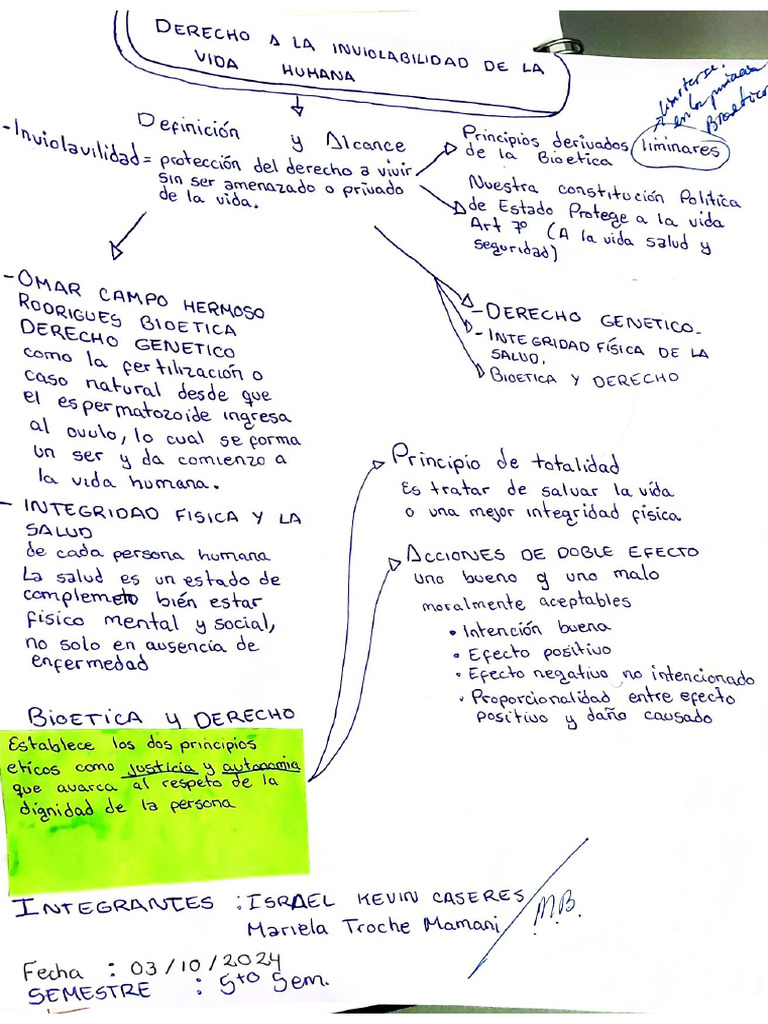 DERECHO A LA INVIOLABILIDAD DE LA
VIDA HUMANA
limitarse
en los
Bioetico
Definición y Alcance
-Inviolavilidad = protección del derecho a vivir
sin ser amenazado o privado
de la vida.
Principios derivados
de la Bioetica
liminares
Nuestra constitución Política
de Estado Protege a la vida
Art 7º (A la vida salud y
seguridad)
- DERECHO GENETICO.
- INTEGRIDAD FÍSICA DE LA
SALUD.
BIOETICA Y DERECHO
-OMAR CAMPO HERMOSO
RODRIGUES BIOETICA
DERECHO GENETICO
como la fertilización o
caso natural desde que
el espermatozoide ingresa
al ovulo, lo cual se forma
un ser y da comienzo a
la vida humana.
- INTEGRIDAD FISICA Y LA
SALUD
de cada persona humana
La salud es un estado de
complemeto bién estar
físico mental y social,
no solo en ausencia de
enfermedad
Principio de totalidad
Es tratar de salvar la vida
o una mejor integridad física
ACCIONES DE DOBLE EFECTO
uno bueno y uno malo
moralmente aceptables
• Intención buena
• Efecto positivo
• Efecto negativo no intencionado
• Proporcionalidad entre efecto
positivo y daño causado
BIOETICA Y DERECHO
Establece los dos principios
eticos como justicia y autonomia
que avarca al respeto de la
dignidad de la persona
INTEGRANTES : ISRAEL KEVIN CASERES
Mariela Troche Mamani
M.B.
Fecha : 03/10/2024
SEMESTRE : 5to Sem.